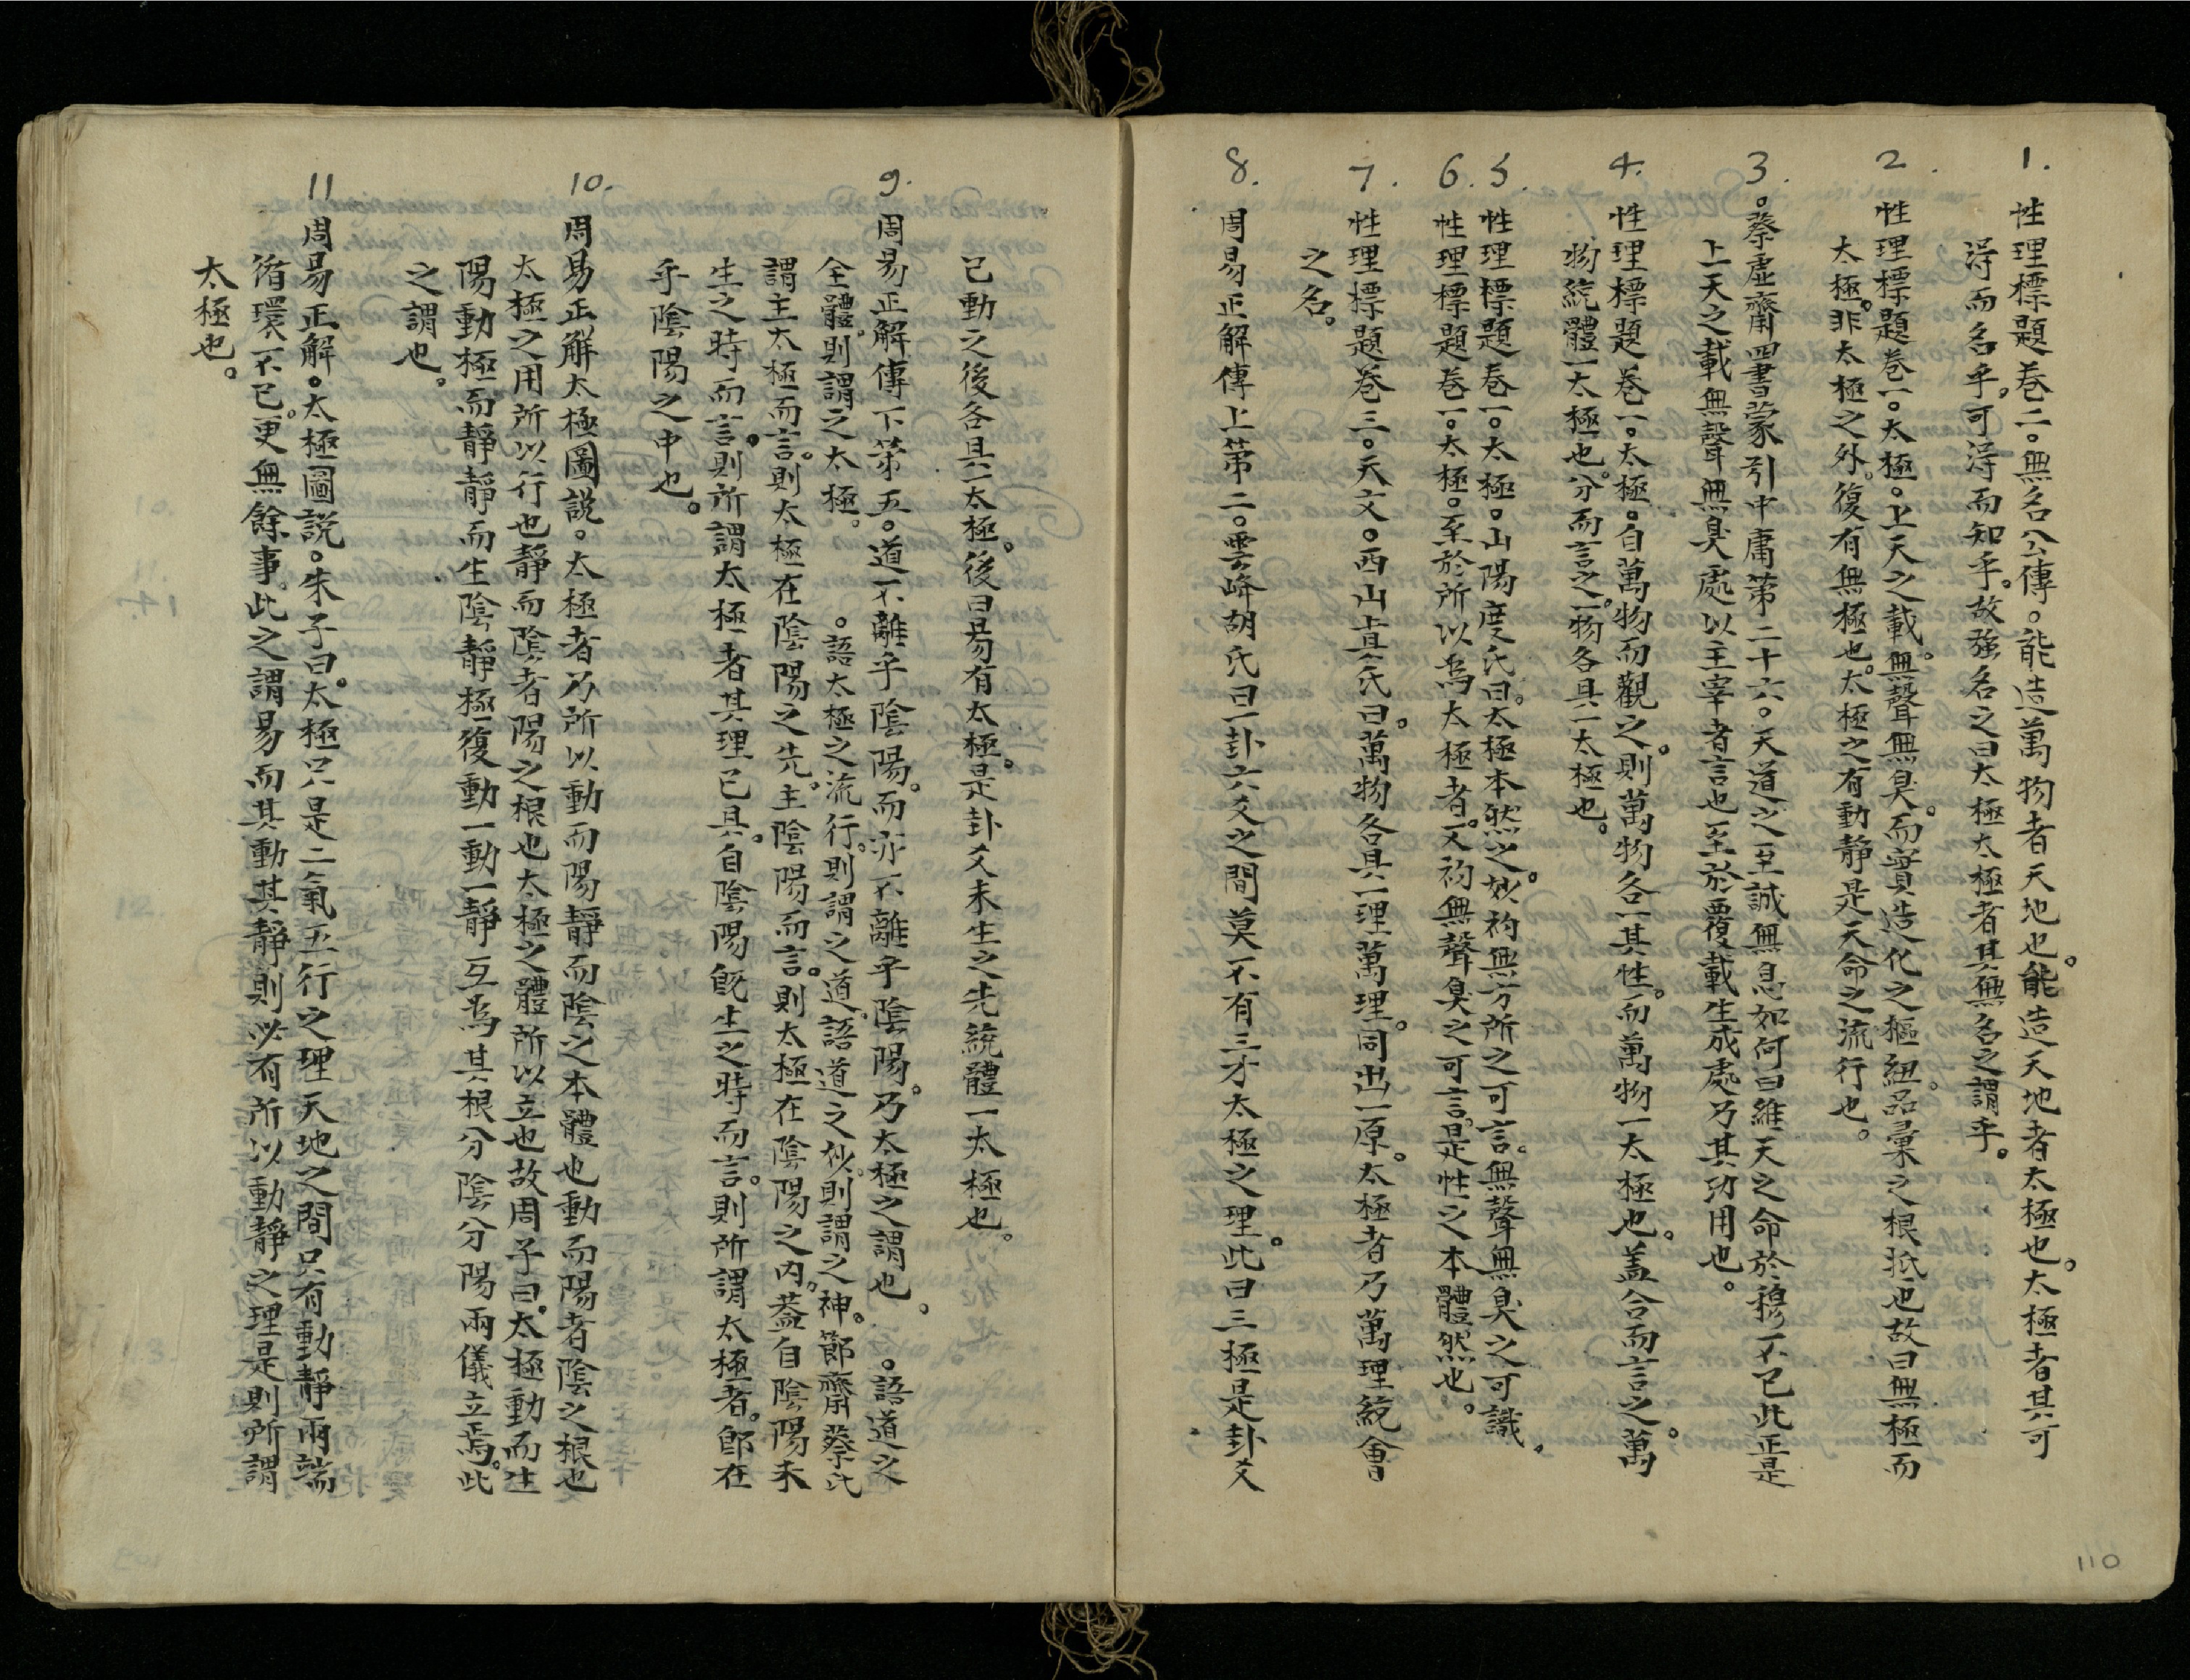 1. 性理標題卷二。無名公傳。能造萬物者天地也。能造天地者太極也。太極者其可
得而名乎。可得而知乎。故強名之曰太極太極者其無名之謂乎。
2. 性理標題卷一。太極。上天之載。無聲無臭。而實造化之樞紐。品彙之根抵也故曰無極而
太極。非太極之外。復有無極也。太極之有動靜是天命之流行也。
3. 。蔡虛齋四書蒙引中庸第二十六。天道之至誠無息如何曰維天之命於穆不已此正是
上天之載無聲無臭處以主宰者言也至於覆載生成處乃其功用也。
4. 性理標題卷一。太極。自萬物而觀之。則萬物各一其性。而萬物一太極也。蓋合而言之。萬
物統體一太極也。分而言之。一物各具一太極也。
5. 性理標題卷一。太極。山陽度氏曰。太極本然之妙。初無方所之可言。無聲無臭之可識。
6. 性理標題卷一。太極。至於所以為太極者。又初無聲臭之可言。是性之本體然也。
7. 性理標題卷三。天文。西山真氏曰。萬物各具一理萬理。同出一原。太極者乃萬理統會
之名。
8. 周易正解傳上第二。雲峰胡氏曰一卦六爻之間莫不有三才太極之理。此曰三極是卦爻
已動之後各具一太極。後曰易有太極。是卦爻未生之先統體一太極也。
9. 周易正解傳下第五。道不離乎陰陽。而亦不離乎陰陽。乃太極之謂也。。語道之
全體。則謂之太極。。語太極之流行。則謂之道。語道之妙。則謂之神。節齋蔡氏
謂主太極而言。則太極在陰陽之先。主陰陽而言。則太極在陰陽之內。蓋自陰陽未
生之時而言。則所謂太極者其理已具。自陰陽既生之時而言。則所謂太極者。即在
乎陰陽之中也。
10. 周易正解太極圖説。太極者乃所以動而陽靜而陰之本體也動而陽者陰之根也
太極之用所以行也靜而陰者陽之根也太極之體所以立也故周子曰。太極動而生
陽動極而靜靜而生陰靜極復動一動一靜互為其根分陰分陽兩儀立焉。此
之謂也。
11 周易正解。太極圖説。朱子曰。太極只是二氣五行之理天地之間只有動靜兩端
循環不已。更無餘事。此之謂易而其動其靜則必有所以動靜之理是則所謂
太極也。
110